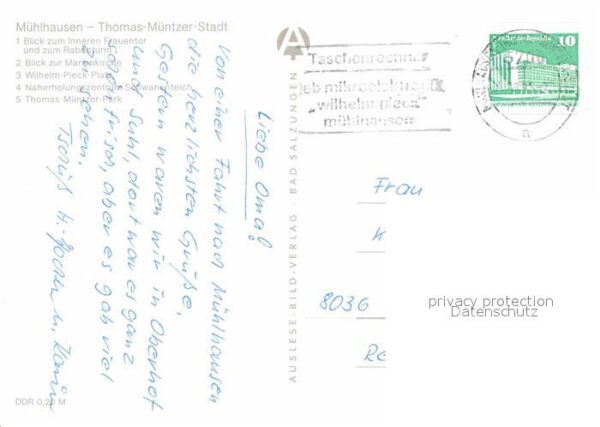 Mühlhausen – Thomas-Müntzer-Stadt
1 Blick zum Inneren Frauentor
und zum Rabenturm
2 Blick zur Marienkirche
3 Wilhelm-Pieck-Platz
4 Naherholungszentrum Schwanenteich
5 Thomas-Müntzer-Park
Liebe Oma!
Von einer Fahrt nach Mühlhausen
die herzlichsten Grüße.
Gestern waren wir in Oberhof
und Suhl, dort war es ganz
schön frisch, aber es gab viel
zu sehen.
Tschüß H.-Jochen u. Karin
DDR 0,20 M
AUSLESE-BILD-VERLAG · BAD SALZUNGEN
Taschenrechner
eb mikroelektronik
„wilhelm pieck"
mühlhausen
Palast der Republik
10
a
Frau
K
8036
Re
privacy protection
Datenschutz